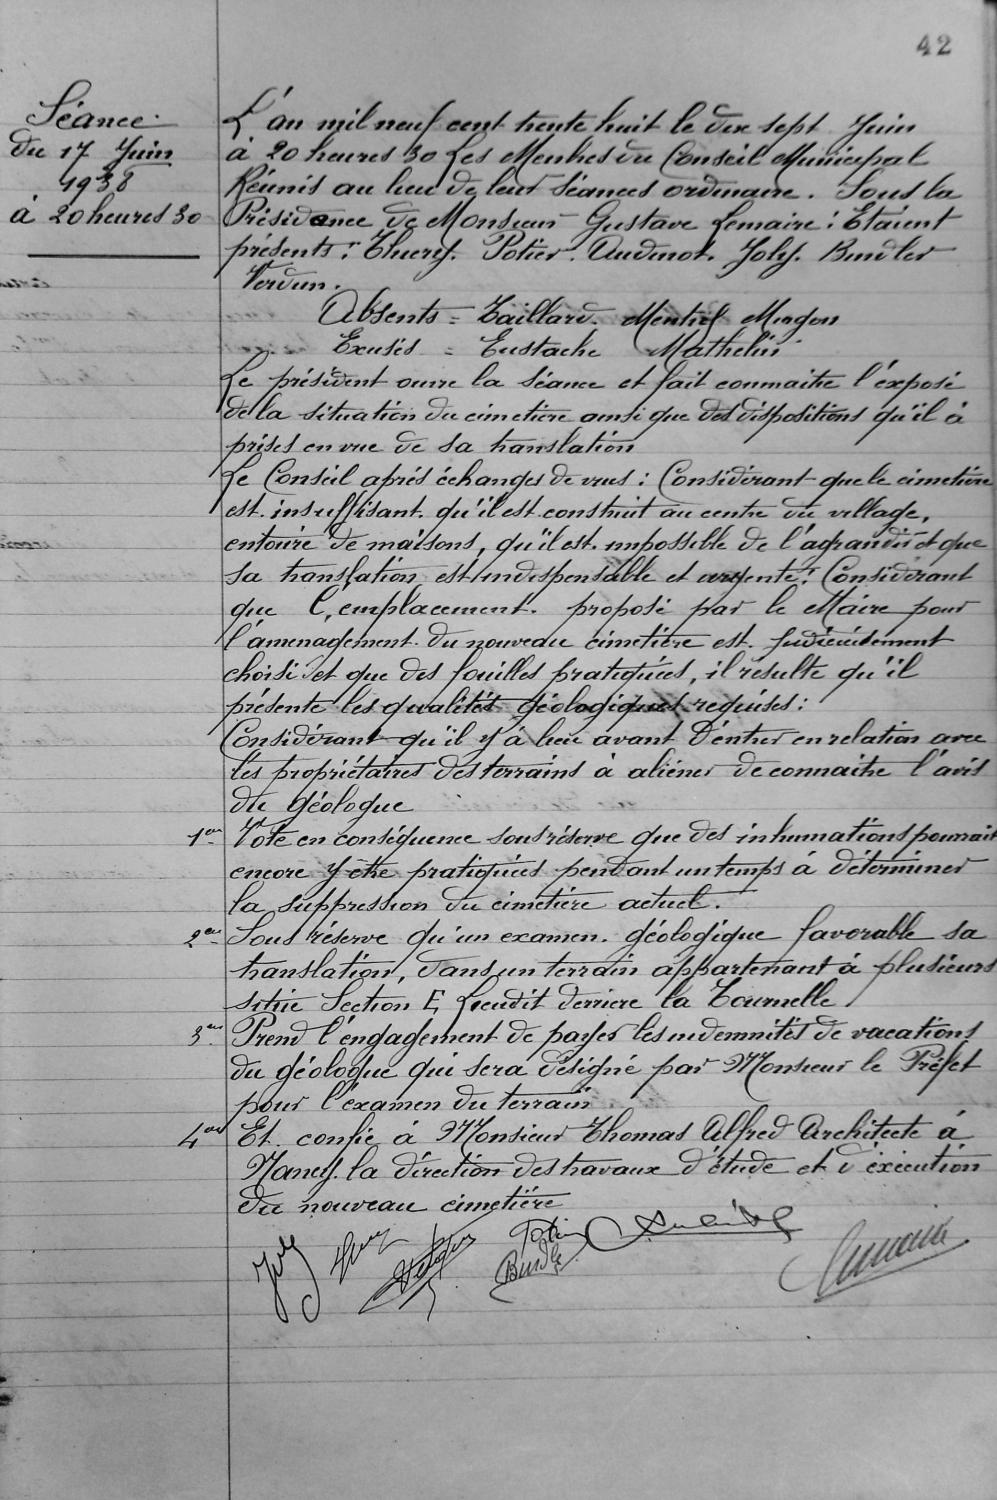 42
Séance
du 17 Juin
1938
à 20 heures 30
L'an mil neuf cent trente huit le dix sept Juin
à 20 heures 30 Les Membres du Conseil Municipal
Réunis au lieu de leur Séances ordinaire. Sous la
Présidence de Monsieur Gustave Lemaire : Etaient
présents : Thuery. Potier. Audinot. Joly. Bundler
Verdun.
Absents = Taillard. Mentrel Mougon
Exusés = Eustache Mathelin
Le président ouvre la Séance et fait connaitre l'éxposé
de la situation du cimetière ainsi que des dispositions qu'il à
prises en vue de sa translation
Le Conseil aprés échanges de vues : Considérant que le cimetière
est insuffisant. qu'il est construit au centre du village,
entouré de maisons, qu'il est impossible de l'agrandir et que
sa translation est indispensable et urgente : Considérant
que l'emplacement. proposé par le Maire pour
l'aménagement du nouveau cimetière est. Judicieusement
choisi et que des fouilles pratiquées, il résulte qu'il
présente les qualités géologiques requises :
Considérant qu'il y à lieu avant d'entrer en relation avec
les propriétaires des terrains à aliéner de connaitre l'avis
du géologue
1er Vote en conséquence sous réserve que des inhumations pourrait
encore y être pratiquées pendant un temps à déterminer
la suppression du cimetière actuel.
2em Sous réserve qu'un examen. géologique favorable sa
translation, dans un terrain appartenant à plusieurs
sitúe Section E, Lieudit derriere la Tournelle
3em Prend l'engagement de payer les indemnités de vacations
du géologue qui sera désigné par Monsieur le Préfet
pour l'éxamen du terrain
4em Et. confie à Monsieur Thomas Alfred Architecte à
Nancy. la direction des travaux d'étude et d'éxécution
du nouveau cimetière
Joly Potier
Bundler Lemaire